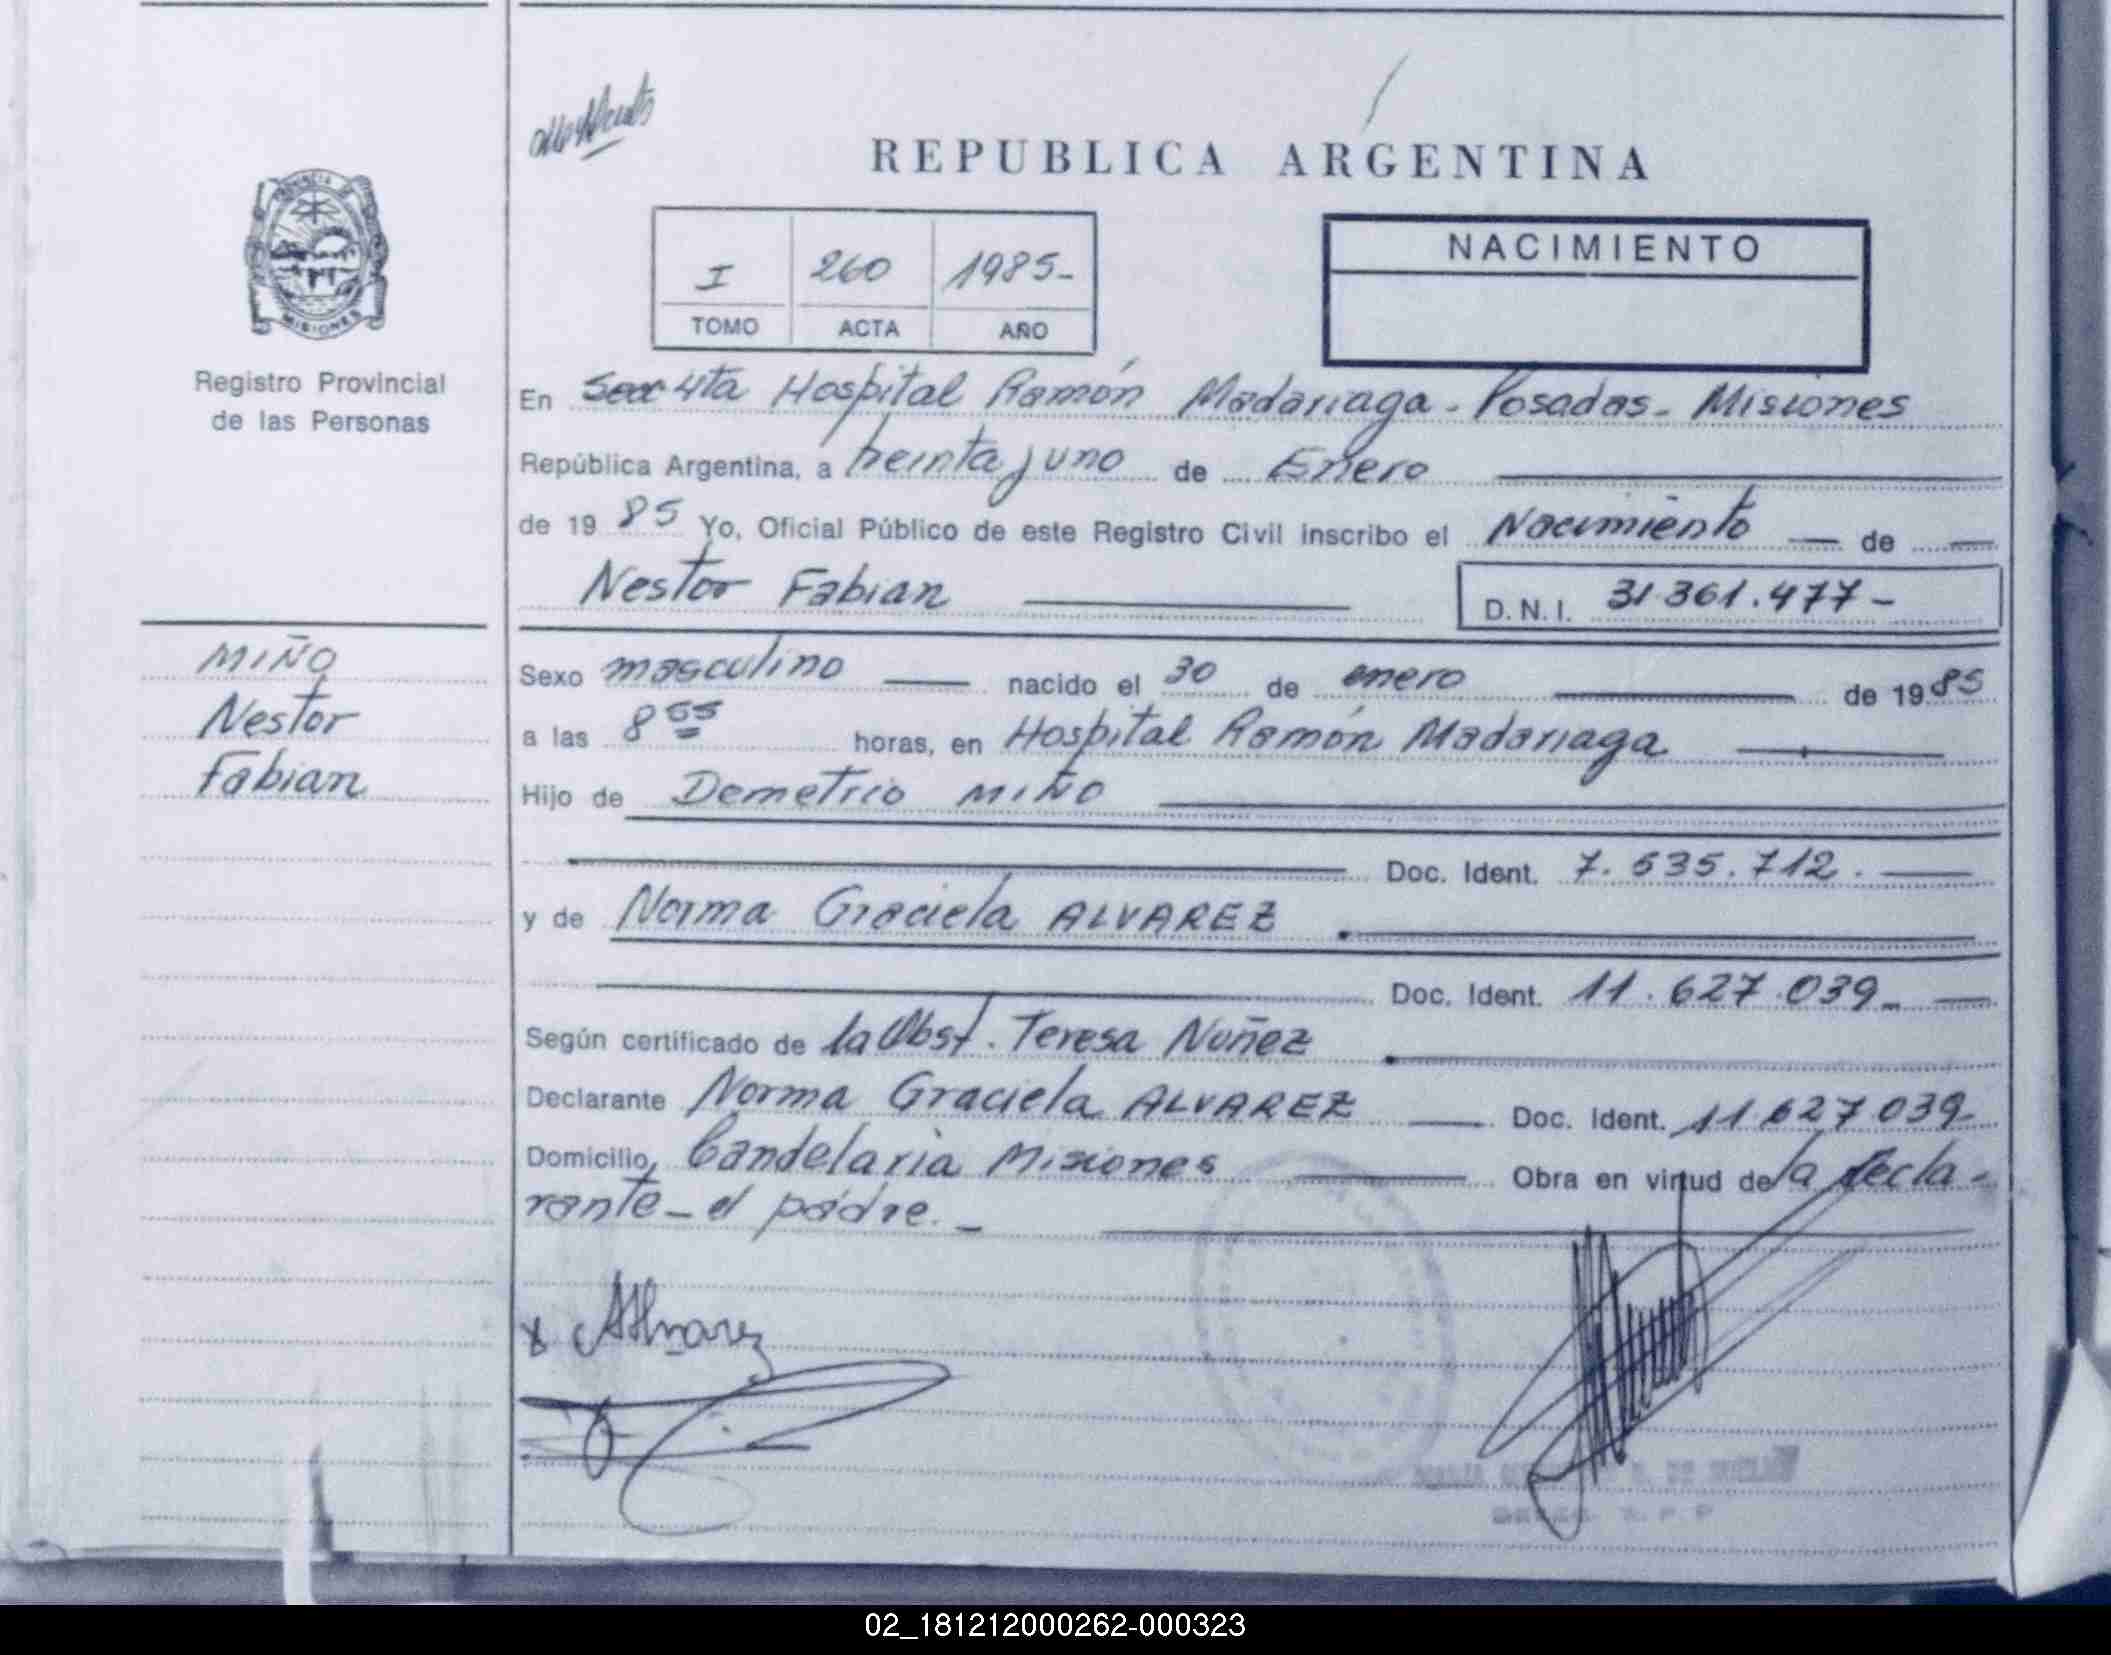 REPUBLICA ARGENTINA
PROVINCIA DE
MISIONES
Registro Provincial
de las Personas
I 260 1985-
TOMO ACTA AÑO
NACIMIENTO
En Secc 4ta Hospital Ramón Madariaga - Posadas - Misiones
República Argentina, a treinta y uno de Enero
de 19 85 Yo, Oficial Público de este Registro Civil inscribo el Nacimiento de
Nestor Fabian D.N.I. 31.361.477-
MIÑO
Nestor
Fabian
Sexo masculino nacido el 30 de enero de 19 85
a las 8 55 horas, en Hospital Ramón Madariaga
Hijo de Demetrio MIÑO
Doc. Ident. 7.535.712.
y de Norma Graciela ALVAREZ
Doc. Ident. 11.627.039-
Según certificado de la Obst. Teresa Nuñez
Declarante Norma Graciela ALVAREZ Doc. Ident. 11.627.039-
Domicilio, Candelaria Misiones Obra en virtud de la decla-
rante - el padre. -
x Alvarez
02_181212000262-000323